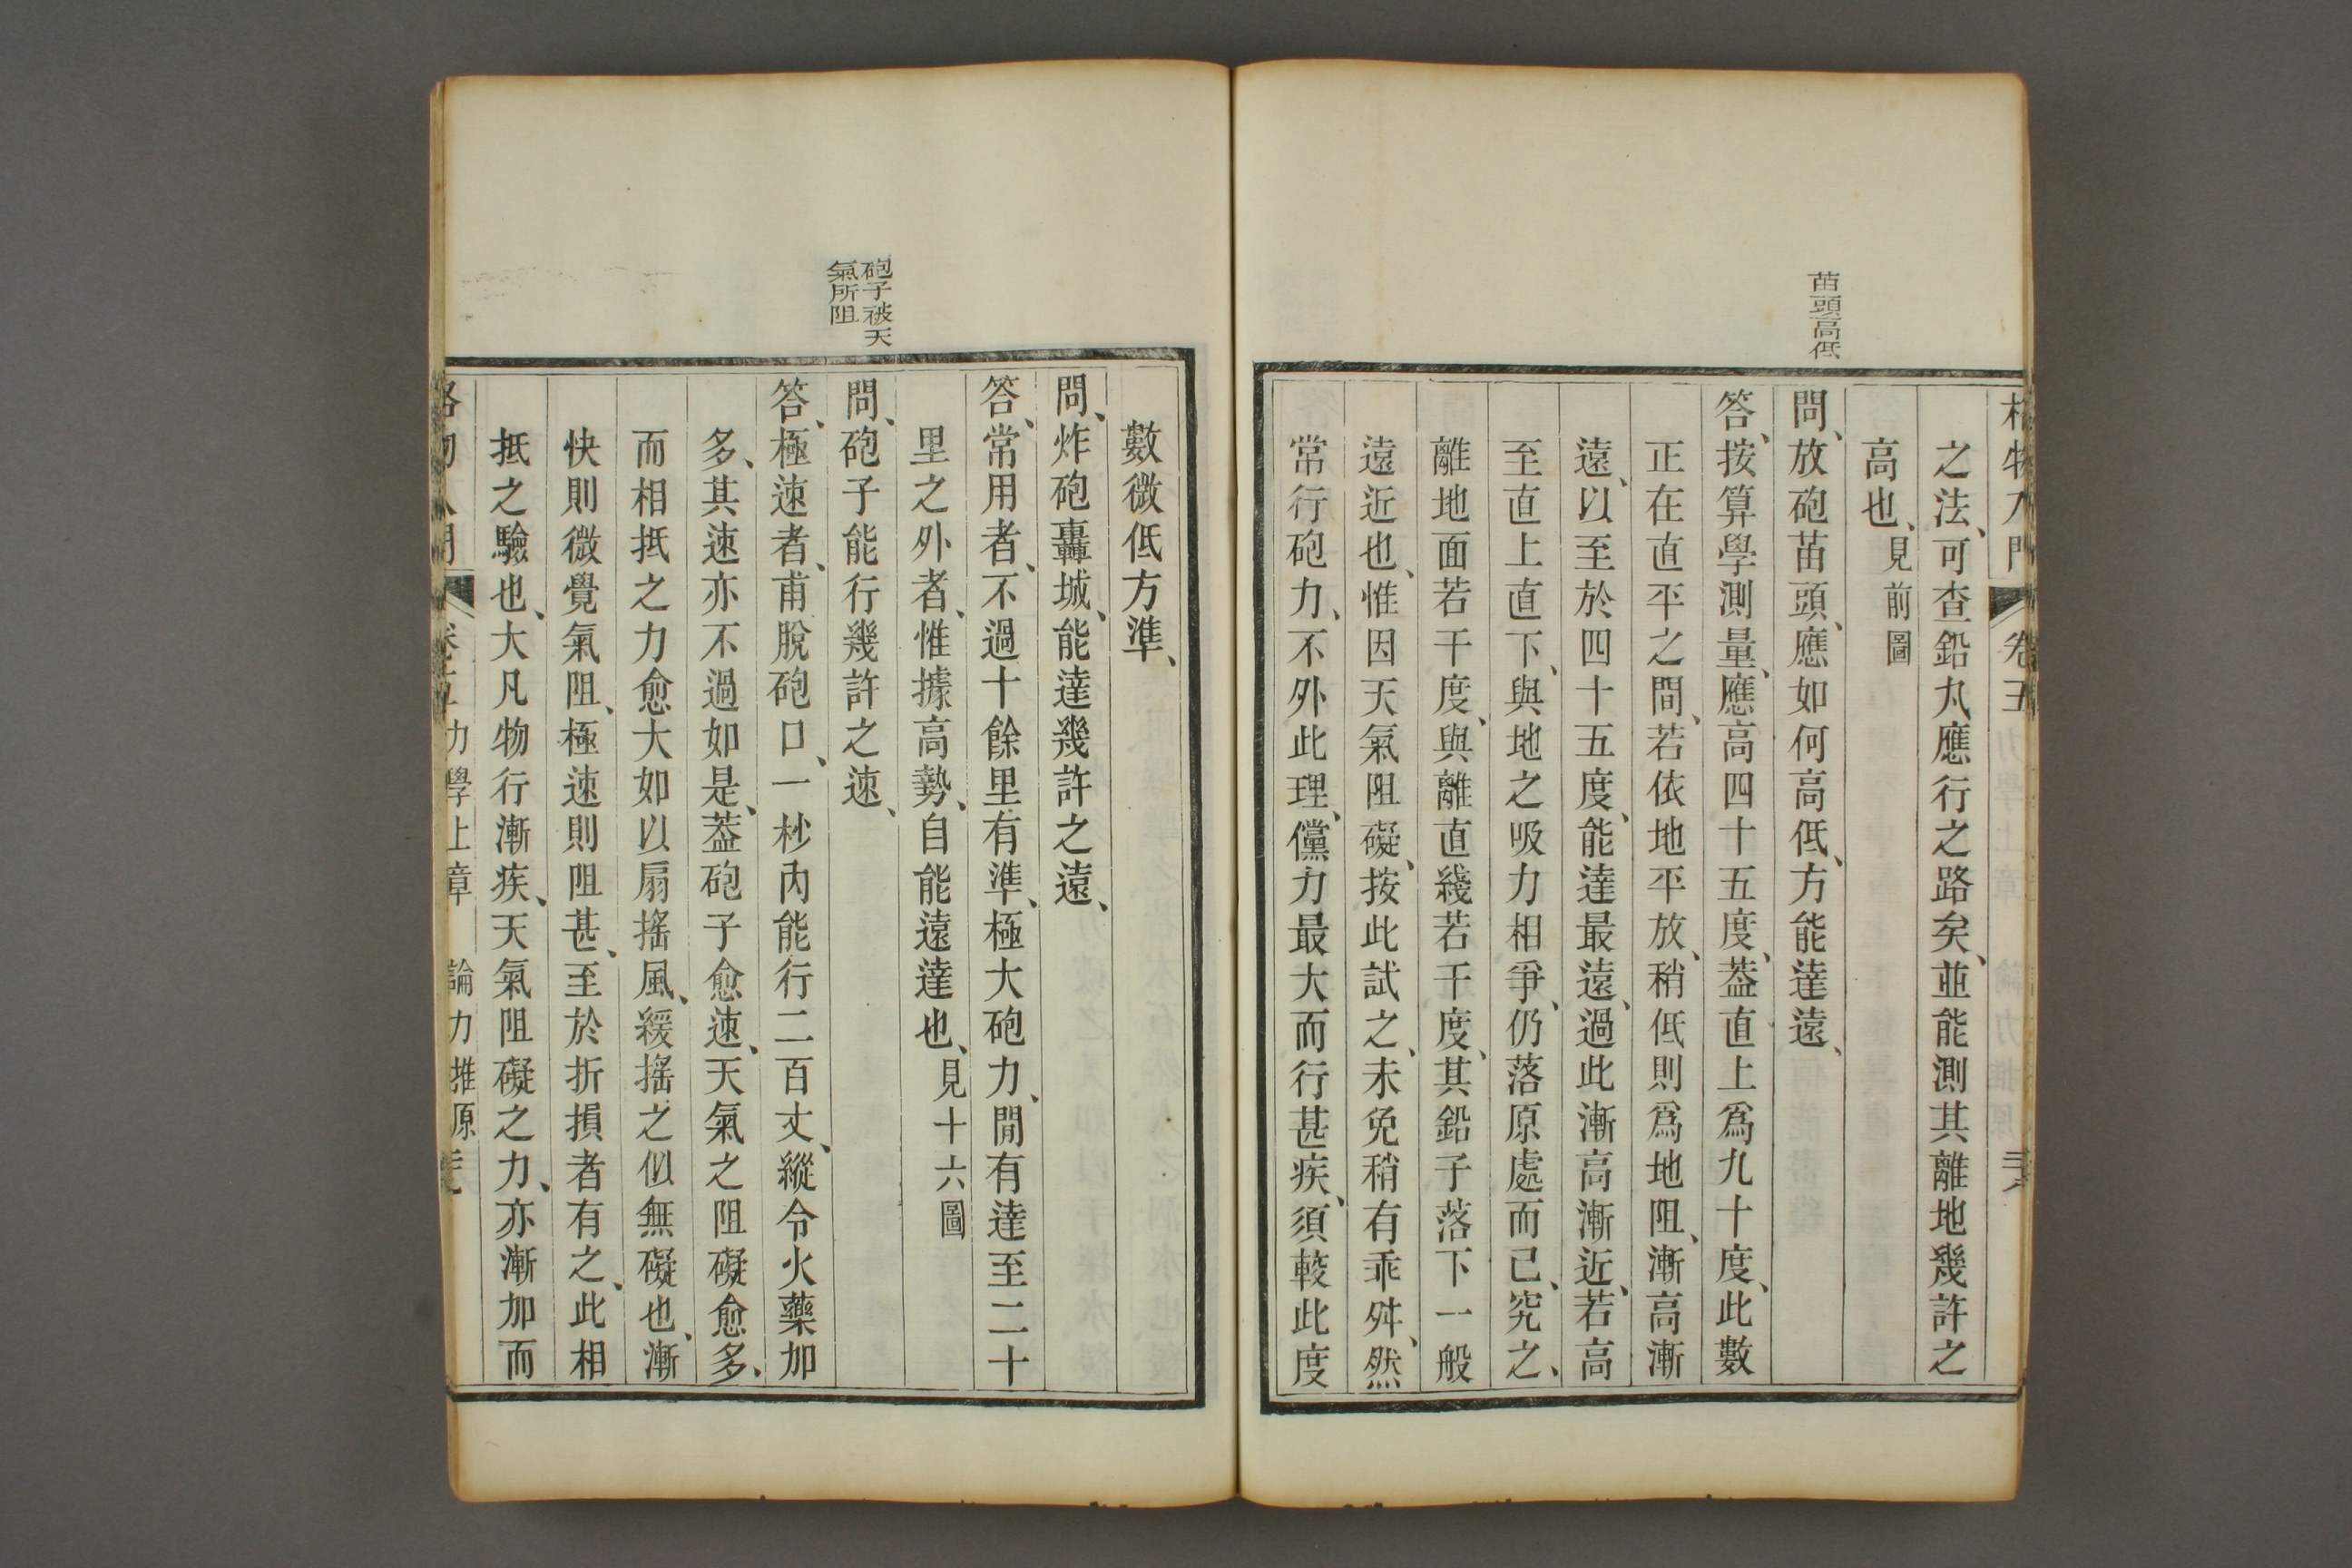 格物入門 卷五
之法、可查鉛丸應行之路矣、並能測其離地幾許之
高也、見前圖
苗頭高低
問、放砲苗頭、應如何高低、方能達遠、
答、按算學測量、應高四十五度、葢直上爲九十度、此數
正在直平之間、若依地平放、稍低則爲地阻、漸高漸
遠、以至於四十五度、能達最遠、過此漸高漸近、若高
至直上直下、與地之吸力相爭、仍落原處而已、究之、
離地面若干度、與離直綫若干度、其鉛子落下一般
遠近也、惟因天氣阻礙、按此試之、未免稍有乖舛、然
常行砲力、不外此理、儻力最大而行甚疾、須較此度
數微低方準、
問、炸砲轟城、能達幾許之遠、
答、常用者、不過十餘里有準、極大砲力、閒有達至二十
里之外者、惟據高勢、自能遠達也、見十六圖
砲子被天
氣所阻
問、砲子能行幾許之速、
答、極速者、甫脫砲口、一杪內能行二百丈、縱令火藥加
多、其速亦不過如是、葢砲子愈速、天氣之阻礙愈多、
而相抵之力愈大、如以扇搖風、緩搖之似無礙也、漸
快則微覺氣阻、極速則阻甚、至於折損者有之、此相
抵之驗也、大凡物行漸疾、天氣阻礙之力、亦漸加而
格物入門 卷五 力學上章 論力推原